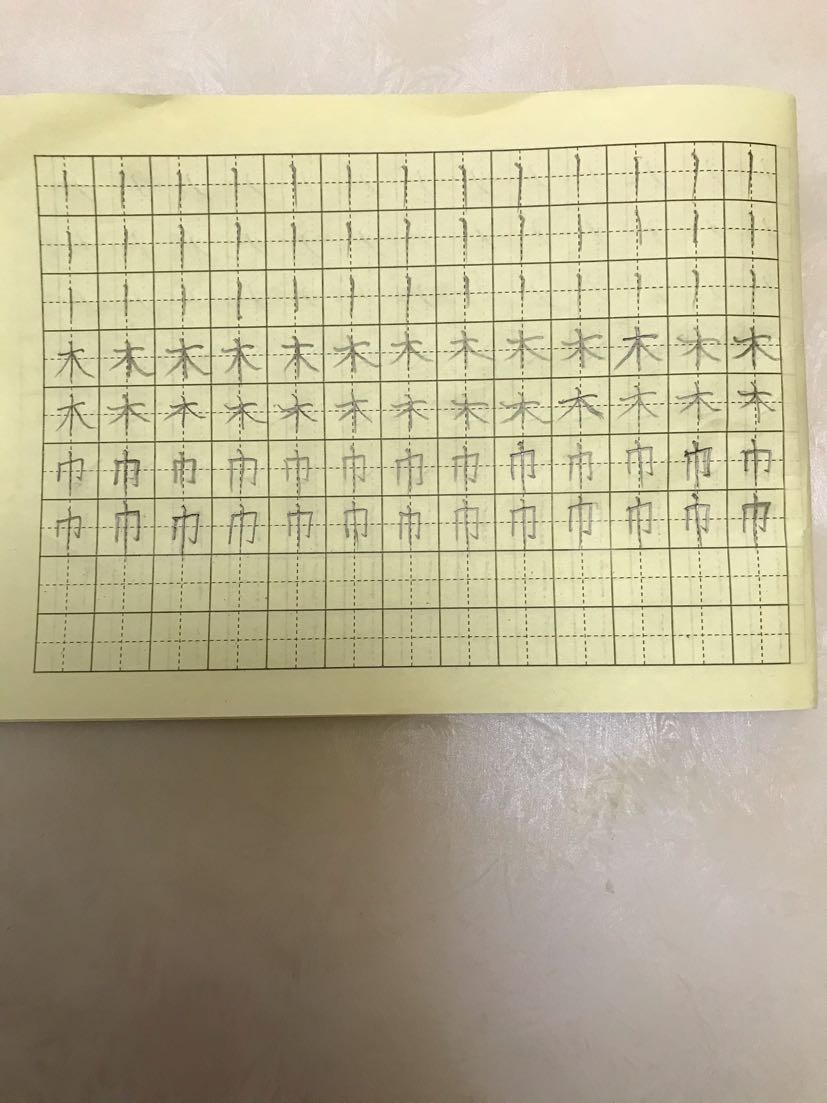 丨丨丨丨丨丨丨丨丨丨丨丨丨
丨丨丨丨丨丨丨丨丨丨丨丨丨
丨丨丨丨丨丨丨丨丨丨丨丨丨
木木木木木木木木木木木木木
木木木木木木木木木木木木木
巾巾巾巾巾巾巾巾巾巾巾巾巾
巾巾巾巾巾巾巾巾巾巾巾巾巾